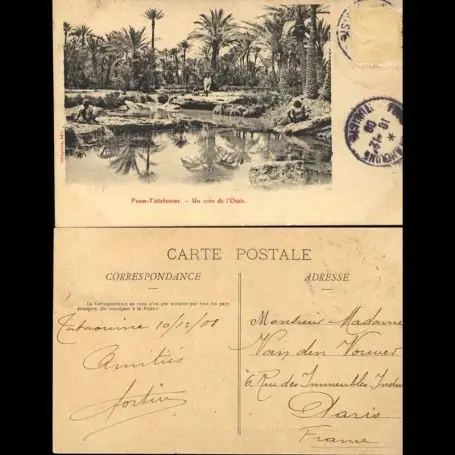 Foum-Tatahouine. - Un coin de l'Oasis.
TUNISIE
10 -12 08
CARTE POSTALE
CORRESPONDANCE
ADRESSE
La Correspondance au recto n'est pas acceptée par tous les pays
étrangers. (Se renseigner à la Poste.)
Tataouine 10/12/08
Amitiés
Monsieur Madame
Van den Vouver
6 Rue des Immeubles Indus
Paris
France